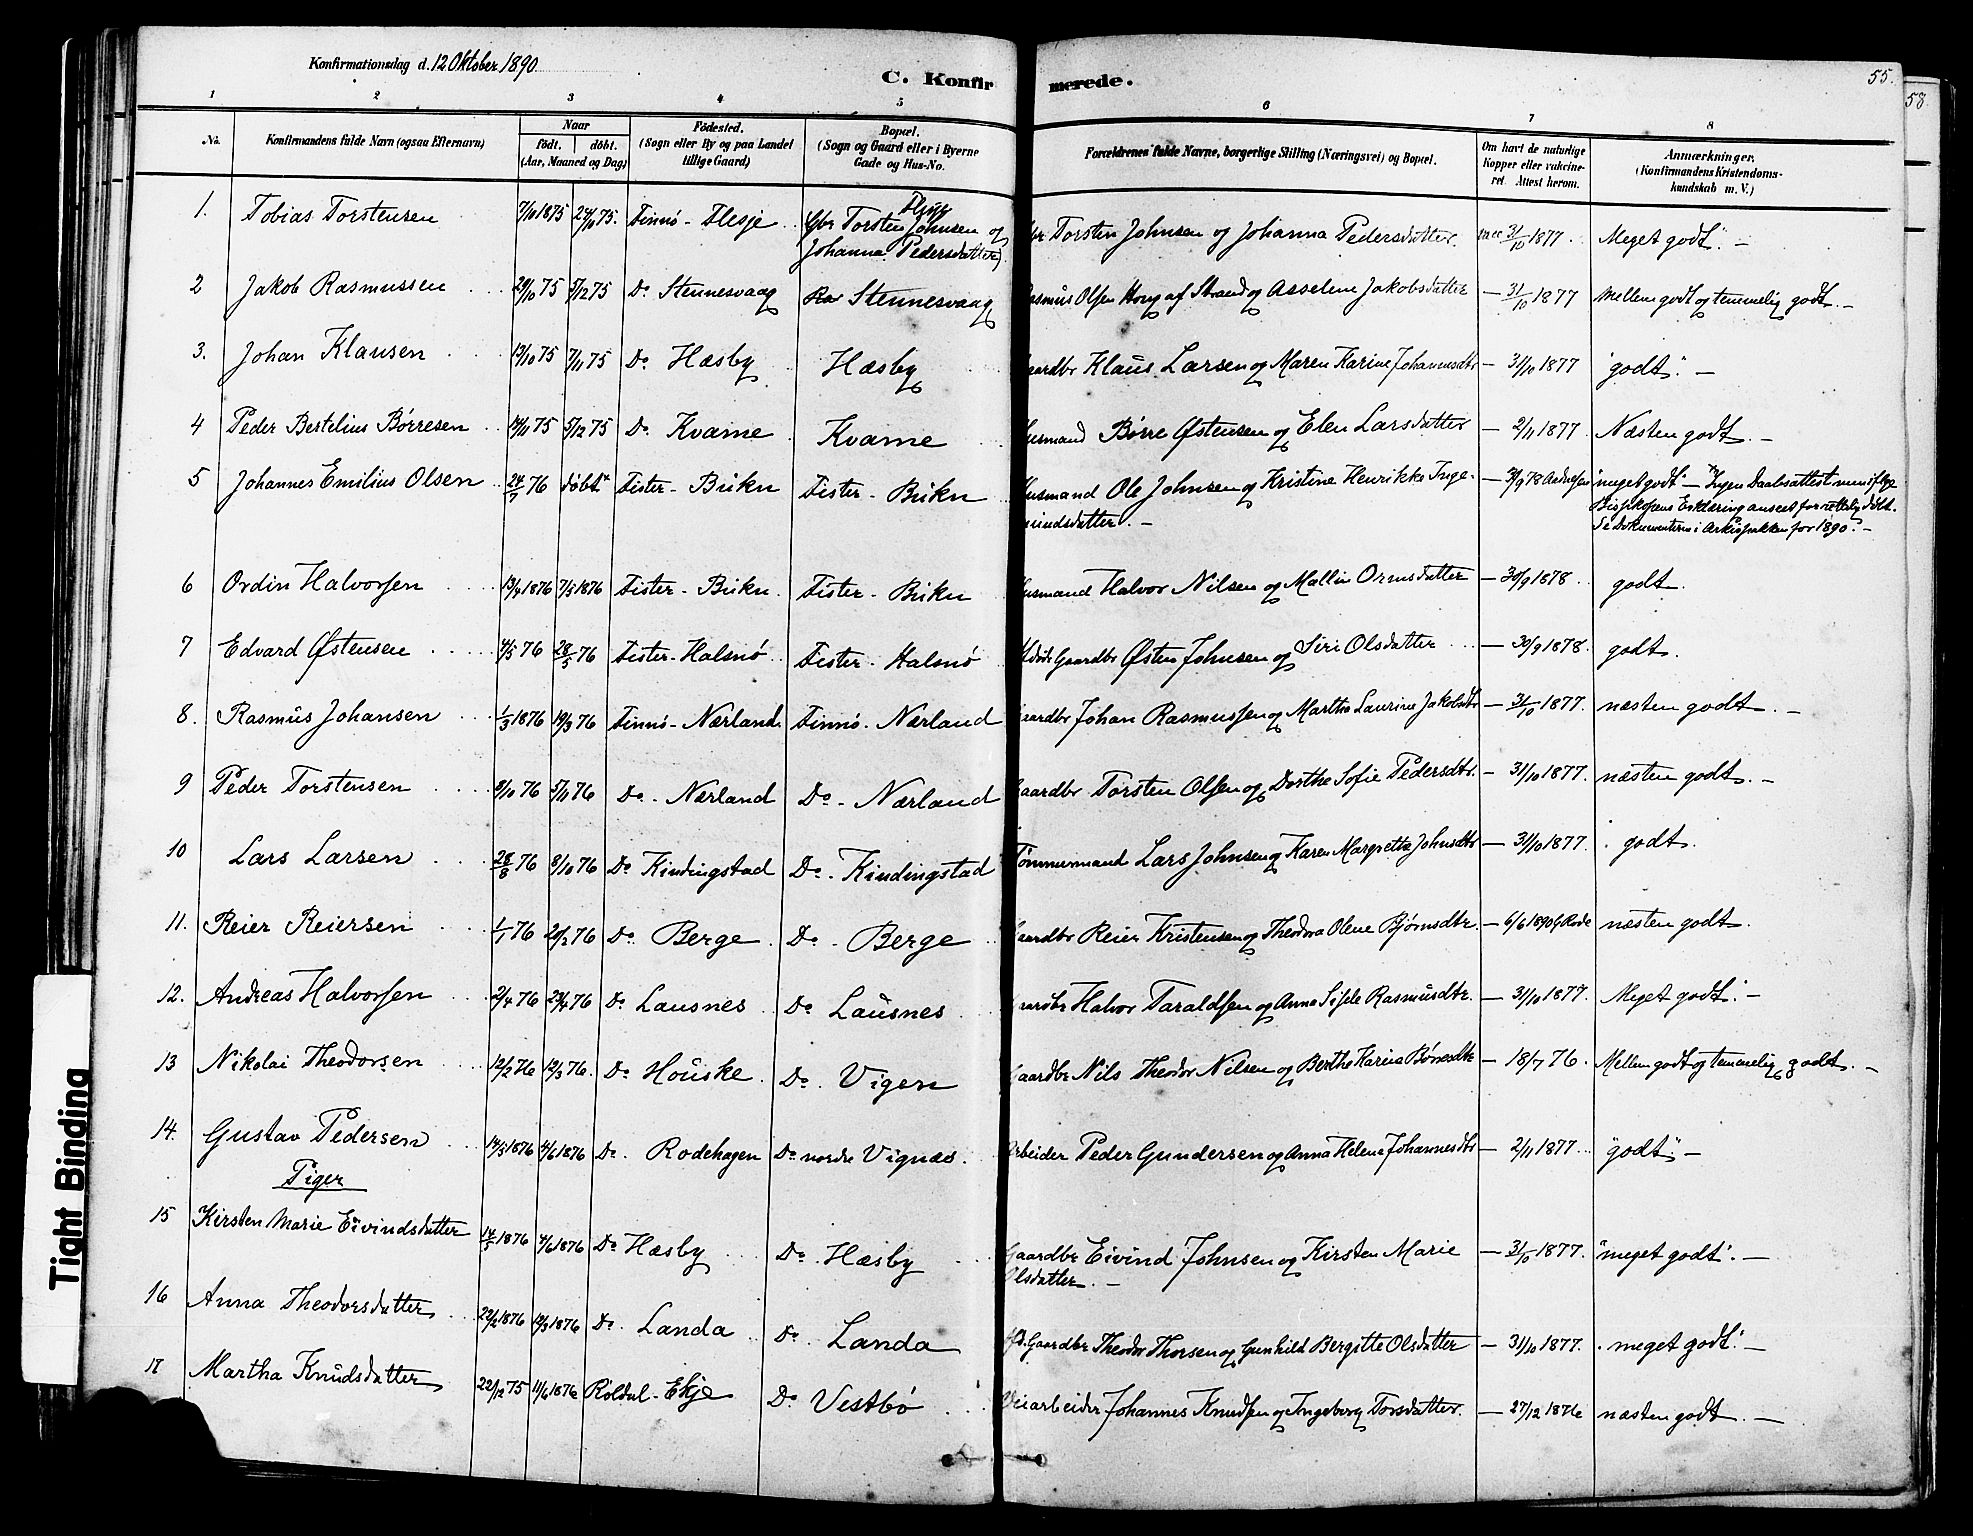 Konfirmationsdag d. 12 Oktober 1890
C. Konfirmerede.
55.
58
1 2 3 4 5 6 7 8
No. Konfirmandens fulde Navn (ogsaa Efternavn) Naar født. døbt. (Aar, Maaned og Dag) Fødested. (Sogn eller By og paa Landet tillige Gaard) Bopæl. (Sogn og Gaard eller i Byerne Gade og Hus-No. Forældrenes fulde Navne, borgerlige Stilling (Næringsvei) og Bopæl. Om havt de naturlige Kopper eller vakcineret. Attest herom. Anmærkninger. (Konfirmandens Kristendomskundskab m. V.)
1. Tobias Torstensen 7/10 1875 24/10 75. Finnø - Flesje Gbr Torsten Johnsen og Johanna Pedersdatter Torsten Johnsen og Johanna Pedersdatter. 31/10 1877. Meget godt. -
2 Jakob Rasmussen 29/10 75 5/12 75 Do Stennesvaag Stennesvaag Rasmus Olsen Haug af Strand og Asseline Jakobsdatter - 31/10 1877 Mellem godt og temmelig godt. -
3. Johan Klausen 13/10 75 7/11 75 Do Hæsby Hæsby Gaardbr Klaus Larsen og Maren Karine Johannesdtr - 31/10 1877 "godt". -
4 Peder Bertelius Børresen 14/11 75 5/12 75 Do Kvame Kvame Husmand Børre Østensen og Elen Larsdatter - 2/11 1877. Næsten godt. -
5 Johannes Emilius Olsen 24/7 76 døbt* Fister - Bukn Fister - Bukn Husmand Ole Johnsen og Kristine Henrikke Ingemundsdatter. - - 3/9 78 "meget godt" - *Ingen Daabsattest men ifølge Bispens Erklæring ansees for rettelig døbt. Se Dokumenterne i Arkivpakken for 1890. -
6 Ordin Halvorsen 13/4 1876 7/5 1876 Fister - Bukn Fister - Bukn Husmand Halvor Nilsen og Mallin Ormsdatter - 30/9 1878 godt.
7 Edvard Østensen 4/5 76 28/5 76 Fister - Halsnø Fister - Halsnø Gaardbr Østen Johnsen og Siri Olsdatter - 30/9 1878. godt.
8. Rasmus Johansen 1/3 1876 19/3 76 Finnø - Nærland Finnø - Nærland Gaardbr Johan Rasmussen og Martha Laurine Jakobsdtr - 31/10 1877. næsten godt. -
9 Peder Torstensen 8/10 76 5/11 76 Do - Nærland Do - Nærland Gaardbr Torsten Olsen og Dorthe Sofie Pedersdtr. - 31/10 1877. næsten godt. -
10 Lars Larsen 28/8 76 8/10 76 Do Kindingstad Do. Kindingstad Tømmermand Lars Johnsen og Karen Margrethe Johnsdtr - 31/10 1877. godt.
11. Reier Reiersen 1/1 76 20/2 76 Do Berge Do - Berge Gaardbr Reier Kristensen og Theodora Olene Bjørnsdtr. - 6/6 1890 næsten godt.
12. Andreas Halvorsen 2/4 76 23/4 76 Do Lausnes Do Lausnes Gaardbr Halvor Taraldsen og Anna Sissele Rasmusdtr. - 31/10 1877. Meget godt. -
13 Nikolai Theodorsen 12/2 76 12/3 76. Do Houske Do. Vigen Gaardbr Nils Theodor Nilsen og Berthe Karine Børresdtr - 18/7 76. Mellem godt og temmelig godt. -
14. Gustav Pedersen 14/5 1876 4/6 1876 Do. Rodehagen Do nordre Vignæs. Arbeider Peder Gundersen og Anna Helene Johannesdtr - 2/11 1877. "godt". -
Piger
15 Kirsten Marie Eivindsdatter 14/5 1876 4/6 1876 Do Hæsby Do. Hæsby Gaardbr Eivind Johnsen og Kirsten Marie Olsdatter. - - 31/10 1877. "meget godt". -
16 Anna Theodorsdatter 22/2 1876 12/3 1876 Do. Landa Do. Landa Gaardbr Theodor Thorsen og Gunhild Bergitte Olsdatter - 31/10 1877. meget godt. -
17 Martha Knudsdatter 22/12 75 11/6 1876 Røldal - Ekje Do Vestbø Veiarbeider Johannes Knudsen og Ingeborg Torsdatter. - 27/12 1876 næsten godt. -
Tight Binding